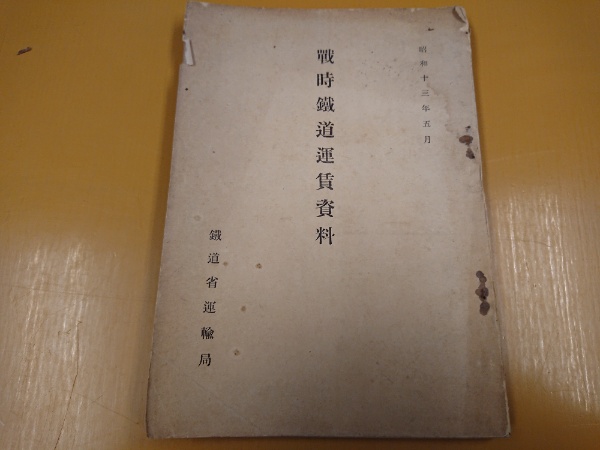 昭和十三年五月
戰時鐵道運賃資料
鐵道省運輸局